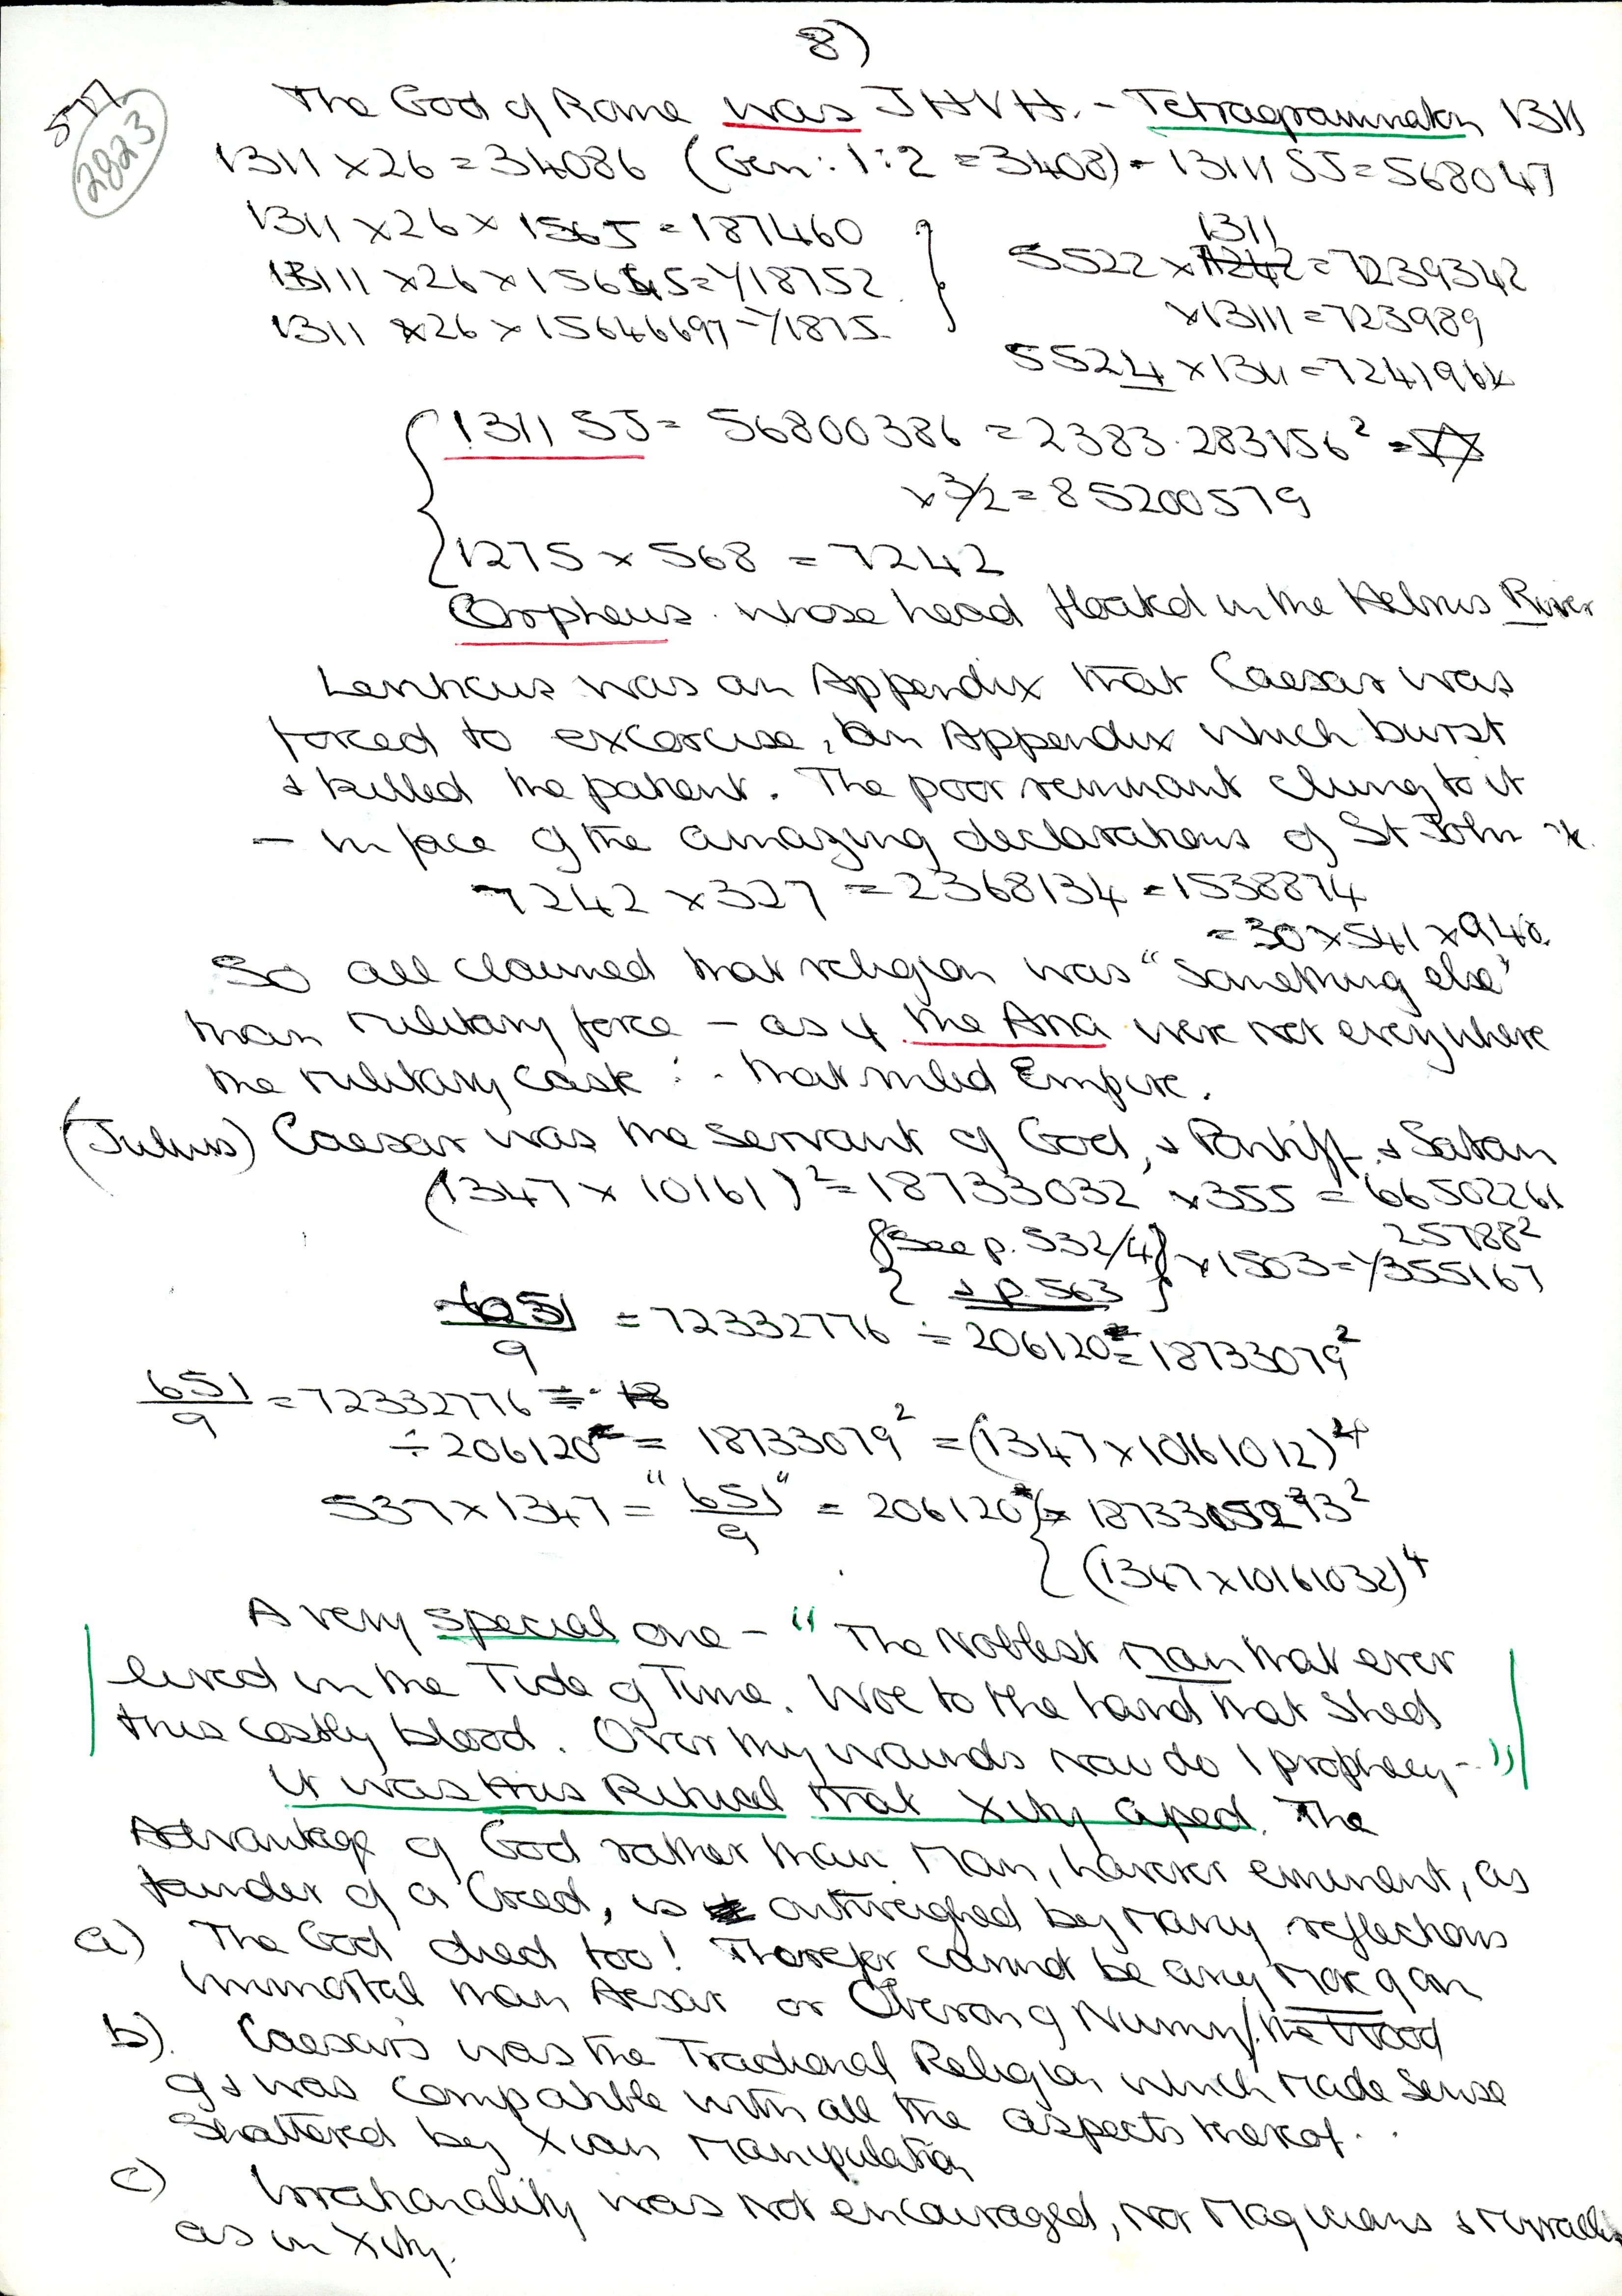 8)
577
2823
The God of Rome was JHVH. - Tetragrammaton 1311
1311 × 26 = 34086 (Gen: 1:2 = 3408) - 13111 SJ = 568047
1311 × 26 × 1565 = 187460
13111 × 26 × 15645 = 1/18752
1311 × 26 × 15646697 = 1/1875
1311
5522 × 1242 = 7239342
× 13111 = 723989
5524 × 1311 = 7241964
1311 SJ = 56800386 = 2383.283156² =
× 3/2 = 85200579
1275 × 568 = 7242
Orpheus. whose head floated in the Hebrus River
was an Appendix that Caesar was
forced to excorcise, an Appendix which burst
& killed the patient. The poor remnant clung to it
- in face of the amazing declarations of St John
7242 × 327 = 2368134 = 1538874
= 30 × 541 × 948
So all claimed that religion was "something else"
than military force - as if the Aria were not everywhere
the military caste ∴ that ruled Empire.
(Julius) Caesar was the servant of God, & Pontiff & Satan
(1347 × 10161)² = 18733032 × 355 = 66502261
{See p. 532/4} × 1503 = 1/355167
25788²
& p. 563
6051/9 = 72332776 ÷ 206120 = 18733079²
651/9 = 72332776 = 18
÷ 206120 = 18733079² = (1347 × 10161012)⁴
537 × 1347 = "651/9" = 206120 × 187331529 93²
(1347 × 10161032)⁴
A very special one - "The Noblest Man that ever
lived in the Tide of Time. Woe to the hand that shed
this costly blood. Over thy wounds now do I prophecy - "
It was this Ritual that Xity aped. The
Advantage of God rather than Man, however eminent, as
founder of a Creed, is outweighed by many reflections
a) The God died too! Therefor cannot be any more of an
Immortal than Aesar or Oberon of Numny/the Wood
b). Caesar's was the Traditional Religion which made sense
of & was compatible with all the aspects thereof..
Shattered by Xian Manipulation
c) Irrationality was not encouraged, nor Magicians & Miracles
as in Xity.